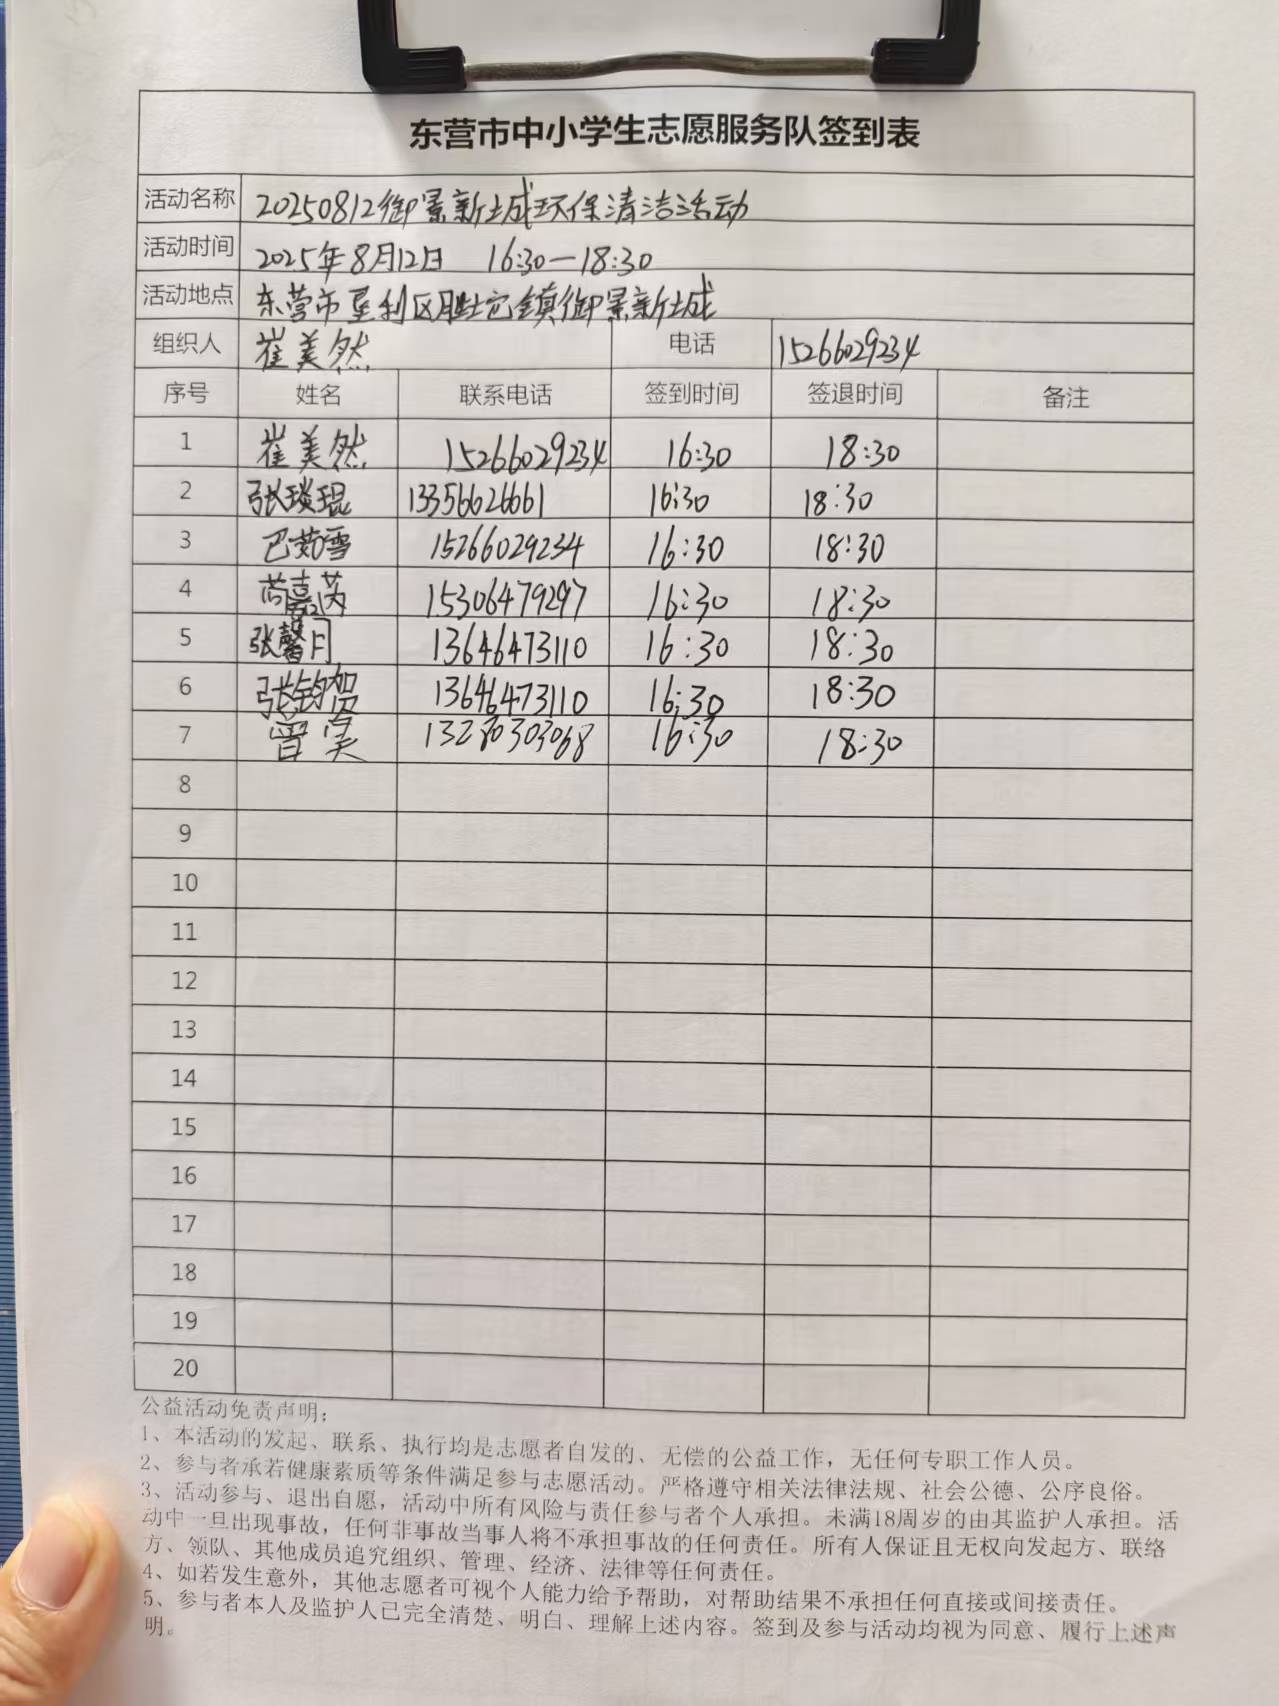 东营市中小学生志愿服务队签到表
活动名称 20250812御景新城环保清洁活动
活动时间 2025年8月12日 16:30—18:30
活动地点 东营市垦利区胜坨镇御景新城
组织人 崔美然 电话 15266029234
序号 姓名 联系电话 签到时间 签退时间 备注
1 崔美然 15266029234 16:30 18:30
2 张琰琨 13356626661 16:30 18:30
3 巴茹雪 15266029234 16:30 18:30
4 芮嘉芮 15306479297 16:30 18:30
5 张馨月 13646473110 16:30 18:30
6 张钧贺 13646473110 16:30 18:30
7 13280303068 16:30 18:30
8
9
10
11
12
13
14
15
16
17
18
19
20
公益活动免责声明：
1、本活动的发起、联系、执行均是志愿者自发的、无偿的公益工作，无任何专职工作人员。
2、参与者承若健康素质等条件满足参与志愿活动。严格遵守相关法律法规、社会公德、公序良俗。
3、活动参与、退出自愿，活动中所有风险与责任参与者个人承担。未满18周岁的由其监护人承担。活
动中一旦出现事故，任何非事故当事人将不承担事故的任何责任。所有人保证且无权向发起方、联络
方、领队、其他成员追究组织、管理、经济、法律等任何责任。
4、如若发生意外，其他志愿者可视个人能力给予帮助，对帮助结果不承担任何直接或间接责任。
5、参与者本人及监护人已完全清楚、明白、理解上述内容。签到及参与活动均视为同意、履行上述声
明。